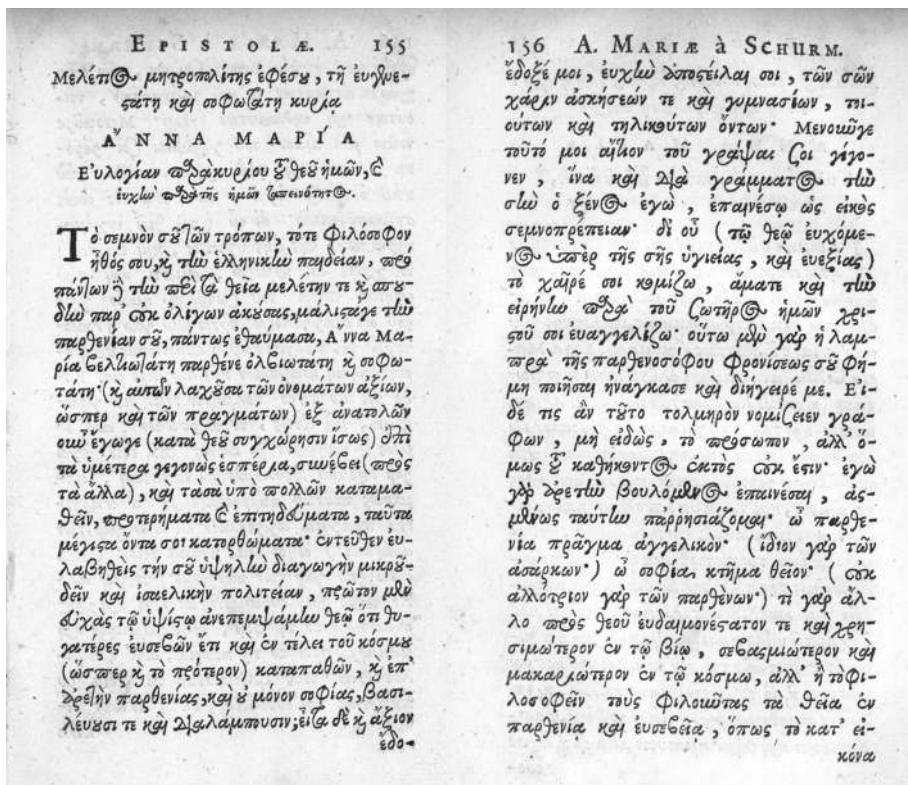 EPISTOLÆ. 155
Μελέτιος μητροπολίτης ἐφέσου, τῇ ἐυγενε-
στάτη καὶ σοφωτάτη κυρία
ἌΝΝΑ ΜΑΡΊΑ
Εὐλογίαν παρὰ κυρίου τοῦ θεοῦ ἡμῶν, καὶ
ἐυχὴν παρὰ τῆς ἡμῶν ταπεινότητος.
Τὸ σεμνὸν σοῦ τῶν τρόπων, τότε φιλόσοφον
ἦθός σου, καὶ τὴν ἑλληνικὴν παιδείαν, πρὸ
πάντων δὲ τὴν περὶ τὰ θεῖα μελέτην τε καὶ σπου-
δὴν παρ' οὐκ ὀλίγων ἀκούσας, μάλιστα γε τὴν
παρθενίαν σοῦ, πάντως ἐθαύμασα, Ἄννα Μα-
ρία βελτιωτάτη παρθένε ὀλβιωτάτη καὶ σοφω-
τάτη· (καὶ αὐτῶν λαχοῦσα τῶν ὀνομάτων ἀξίων,
ὥσπερ καὶ τῶν πραγμάτων) ἐξ ἀνατολῶν
οὖν ἔγωγε (κατὰ θεοῦ συγχώρησιν ἴσως) ἐπὶ
τὰ ὑμέτερα γεγονὼς ἑσπέρια, συνέβει (πρὸς
τὰ ἄλλα), καὶ τὰ σὰ ὑπὸ πολλῶν καταμα-
θεῖν, προτερήματα καὶ ἐπιτηδεύματα, ταῦτα
μέγιστα ὄντα σοι κατορθώματα· ἐντεῦθεν ἐυ-
λαβηθεὶς τὴν σοῦ ὑψηλὴν διαγωγὴν μικροῦ-
δεῖν καὶ ἰσαελικὴν πολιτείαν, πρῶτον μὲν
εὐχὰς τῷ ὑψίστῳ ἀνεπεμψάμην θεῷ ὅτι θυ-
γατέρες ἐυσεβῶν ἔτι καὶ ἐν τέλει τοῦ κόσμου
(ὥσπερ καὶ τὸ πρότερον) καταπαθῶν, καὶ ἐπ'
ἀρετὴν παρθενίας, καὶ οὐ μόνον σοφίας, βασι-
λέυουσι τε καὶ διαλάμπουσιν; εἶτα δὲ καὶ ἄξιον
ἔδο-
156 A. MARIÆ à SCHURM.
ἔδοξέ μοι, ἐυχὴν ἀποστεῖλαι σοι, τῶν σῶν
χάριν ἀσκήσεών τε καὶ γυμνασίων, τοι-
ούτων καὶ τηλικούτων ὄντων· Μενοῦνγε
τοῦτό μοι αἴτιον τοῦ γράψαι σοι γέγο-
νεν, ἵνα καὶ διὰ γράμματος τὴν
σὴν ὁ ξένος ἐγὼ, ἐπαινέσω ὡς εἰκὸς
σεμνοπρέπειαν· δι οὗ (τῷ θεῷ ἐυχόμε-
νος ὑπὲρ τῆς σῆς ὑγιείας, καὶ ἐυεξίας)
τὸ χαῖρέ σοι κομίζω, ἅματε καὶ τὴν
εἰρήνην παρὰ τοῦ σωτῆρος ἡμῶν χρι-
στοῦ σοι ἐυαγγελίζω· οὕτω μὲν γὰρ ἡ λαμ-
πρὰ τῆς παρθενοσόφου φρονίσεως σοῦ φή-
μη ποιῆσαι ἠνάγκασε καὶ διήγειρέ με. Εἰ-
δέ τις ἂν τοῦτο τολμηρὸν νομίζειεν γρά-
φων, μὴ εἰδὼς, τὸ πρόσωπον, ἀλλ' ὅ-
μως τοῦ καθήκοντος ἐκτὸς οὐκ ἔστιν· ἐγὼ
γὰρ ἀρετὴν βουλόμενος ἐπαινέσαι, ἀσ-
μένως ταύτην παῤῥησιάζομαι· ὢ παρθε-
νία πρᾶγμα ἀγγελικὸν· (ἴδιον γὰρ τῶν
ἀσάρκων·) ὢ σοφία κτῆμα θεῖον· (οὐκ
ἀλλότριον γὰρ τῶν παρθένων·) τὶ γὰρ ἄλ-
λο πρὸς θεοῦ ἐυδαιμονέστατον τε καὶ χρη-
σιμώτερον ἐν τῷ βίῳ, σεβασμιώτερον καὶ
μακαριώτερον ἐν τῷ κόσμω, ἀλλ' ἢ τὸ φι-
λοσοφεῖν τοὺς φιλοῦντας τὰ θεῖα ἐν
παρθενία καὶ ἐυσεβεία, ὅπως τὸ κατ' εἰ-
κόνα